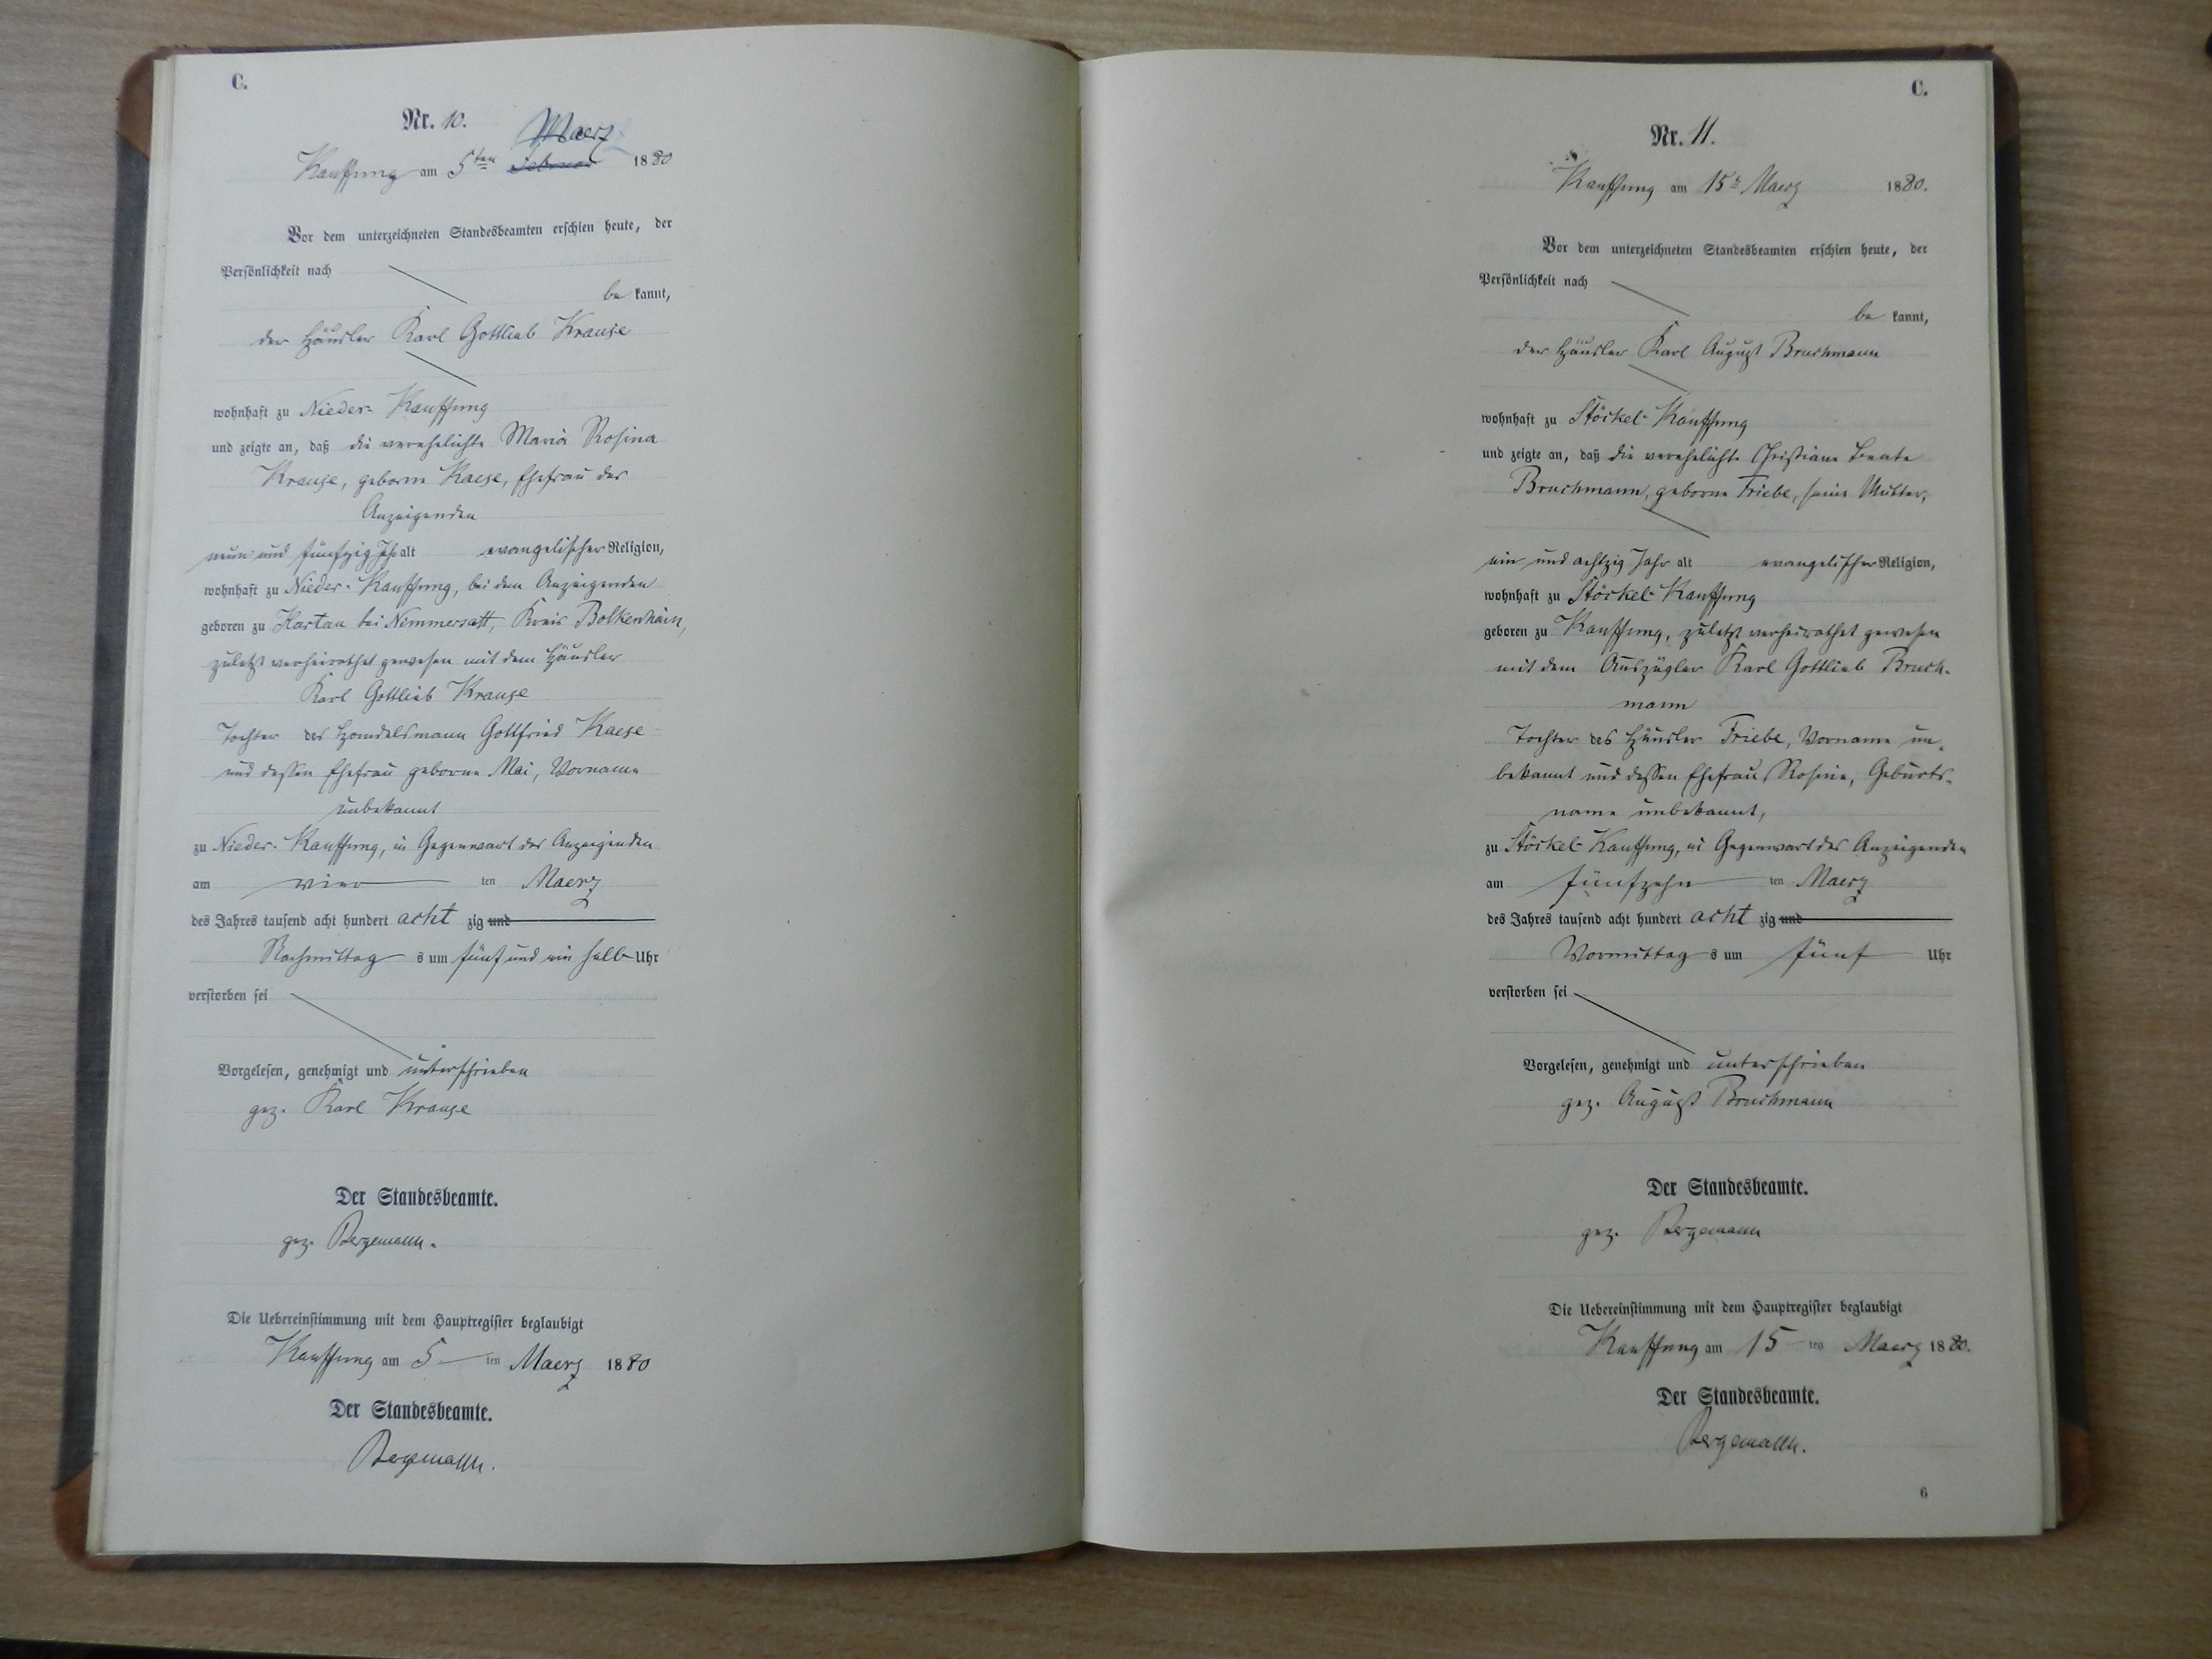 C.
Nr. 10.
Maerz
Kauffung am 5ten Februar 1880
Vor dem unterzeichneten Standesbeamten erschien heute, der
Persönlichkeit nach
be kannt,
der Häusler Karl Gottlieb Krause
wohnhaft zu Nieder-Kauffung
und zeigte an, daß die verehelichte Maria Rosina
Krause, geborne Kaese, Ehefrau des
Anzeigenden
neun und fünfzig Jahr alt evangelischer Religion,
wohnhaft zu Nieder-Kauffung, bei dem Anzeigenden
geboren zu Hartau bei Nimmersatt, Kreis Bolkenhain,
zuletzt verheirathet gewesen mit dem Häusler
Karl Gottlieb Krause
Tochter des Handelsmann Gottfried Kaese
und dessen Ehefrau geborne Mai, Vorname
unbekannt
zu Nieder-Kauffung, in Gegenwart des Anzeigenden
am vier ten Maerz
des Jahres tausend acht hundert acht zig und
Nachmittag s um fünf und ein halb Uhr
verstorben sei
Vorgelesen, genehmigt und unterschrieben
gez. Karl Krause
Der Standesbeamte.
gez. Bergemann.
Die Uebereinstimmung mit dem Hauptregister beglaubigt
Kauffung am 5 ten Maerz 1880
Der Standesbeamte.
Bergemann.
C.
Nr. 11.
Kauffung am 15t Maerz 1880.
Vor dem unterzeichneten Standesbeamten erschien heute, der
Persönlichkeit nach
be kannt,
der Häusler Karl August Bruchmann
wohnhaft zu Stöckel-Kauffung
und zeigte an, daß die verehelichte Christiane Beate
Bruchmann, geborne Friebe, seine Mutter,
ein und achtzig Jahr alt evangelischer Religion,
wohnhaft zu Stöckel-Kauffung
geboren zu Kauffung, zuletzt verheirathet gewesen
mit dem Auszügler Karl Gottlieb Bruch-
mann
Tochter des Häusler Friebe, Vorname un-
bekannt und dessen Ehefrau Rosine, Geburts-
name unbekannt,
zu Stöckel-Kauffung, in Gegenwart des Anzeigenden
am fünfzehn ten Maerz
des Jahres tausend acht hundert acht zig und
Vormittag s um fünf Uhr
verstorben sei
Vorgelesen, genehmigt und unterschrieben
gez. August Bruchmann
Der Standesbeamte.
gez. Bergemann
Die Uebereinstimmung mit dem Hauptregister beglaubigt
Kauffung am 15 ten Maerz 1880.
Der Standesbeamte.
Bergemann.
6